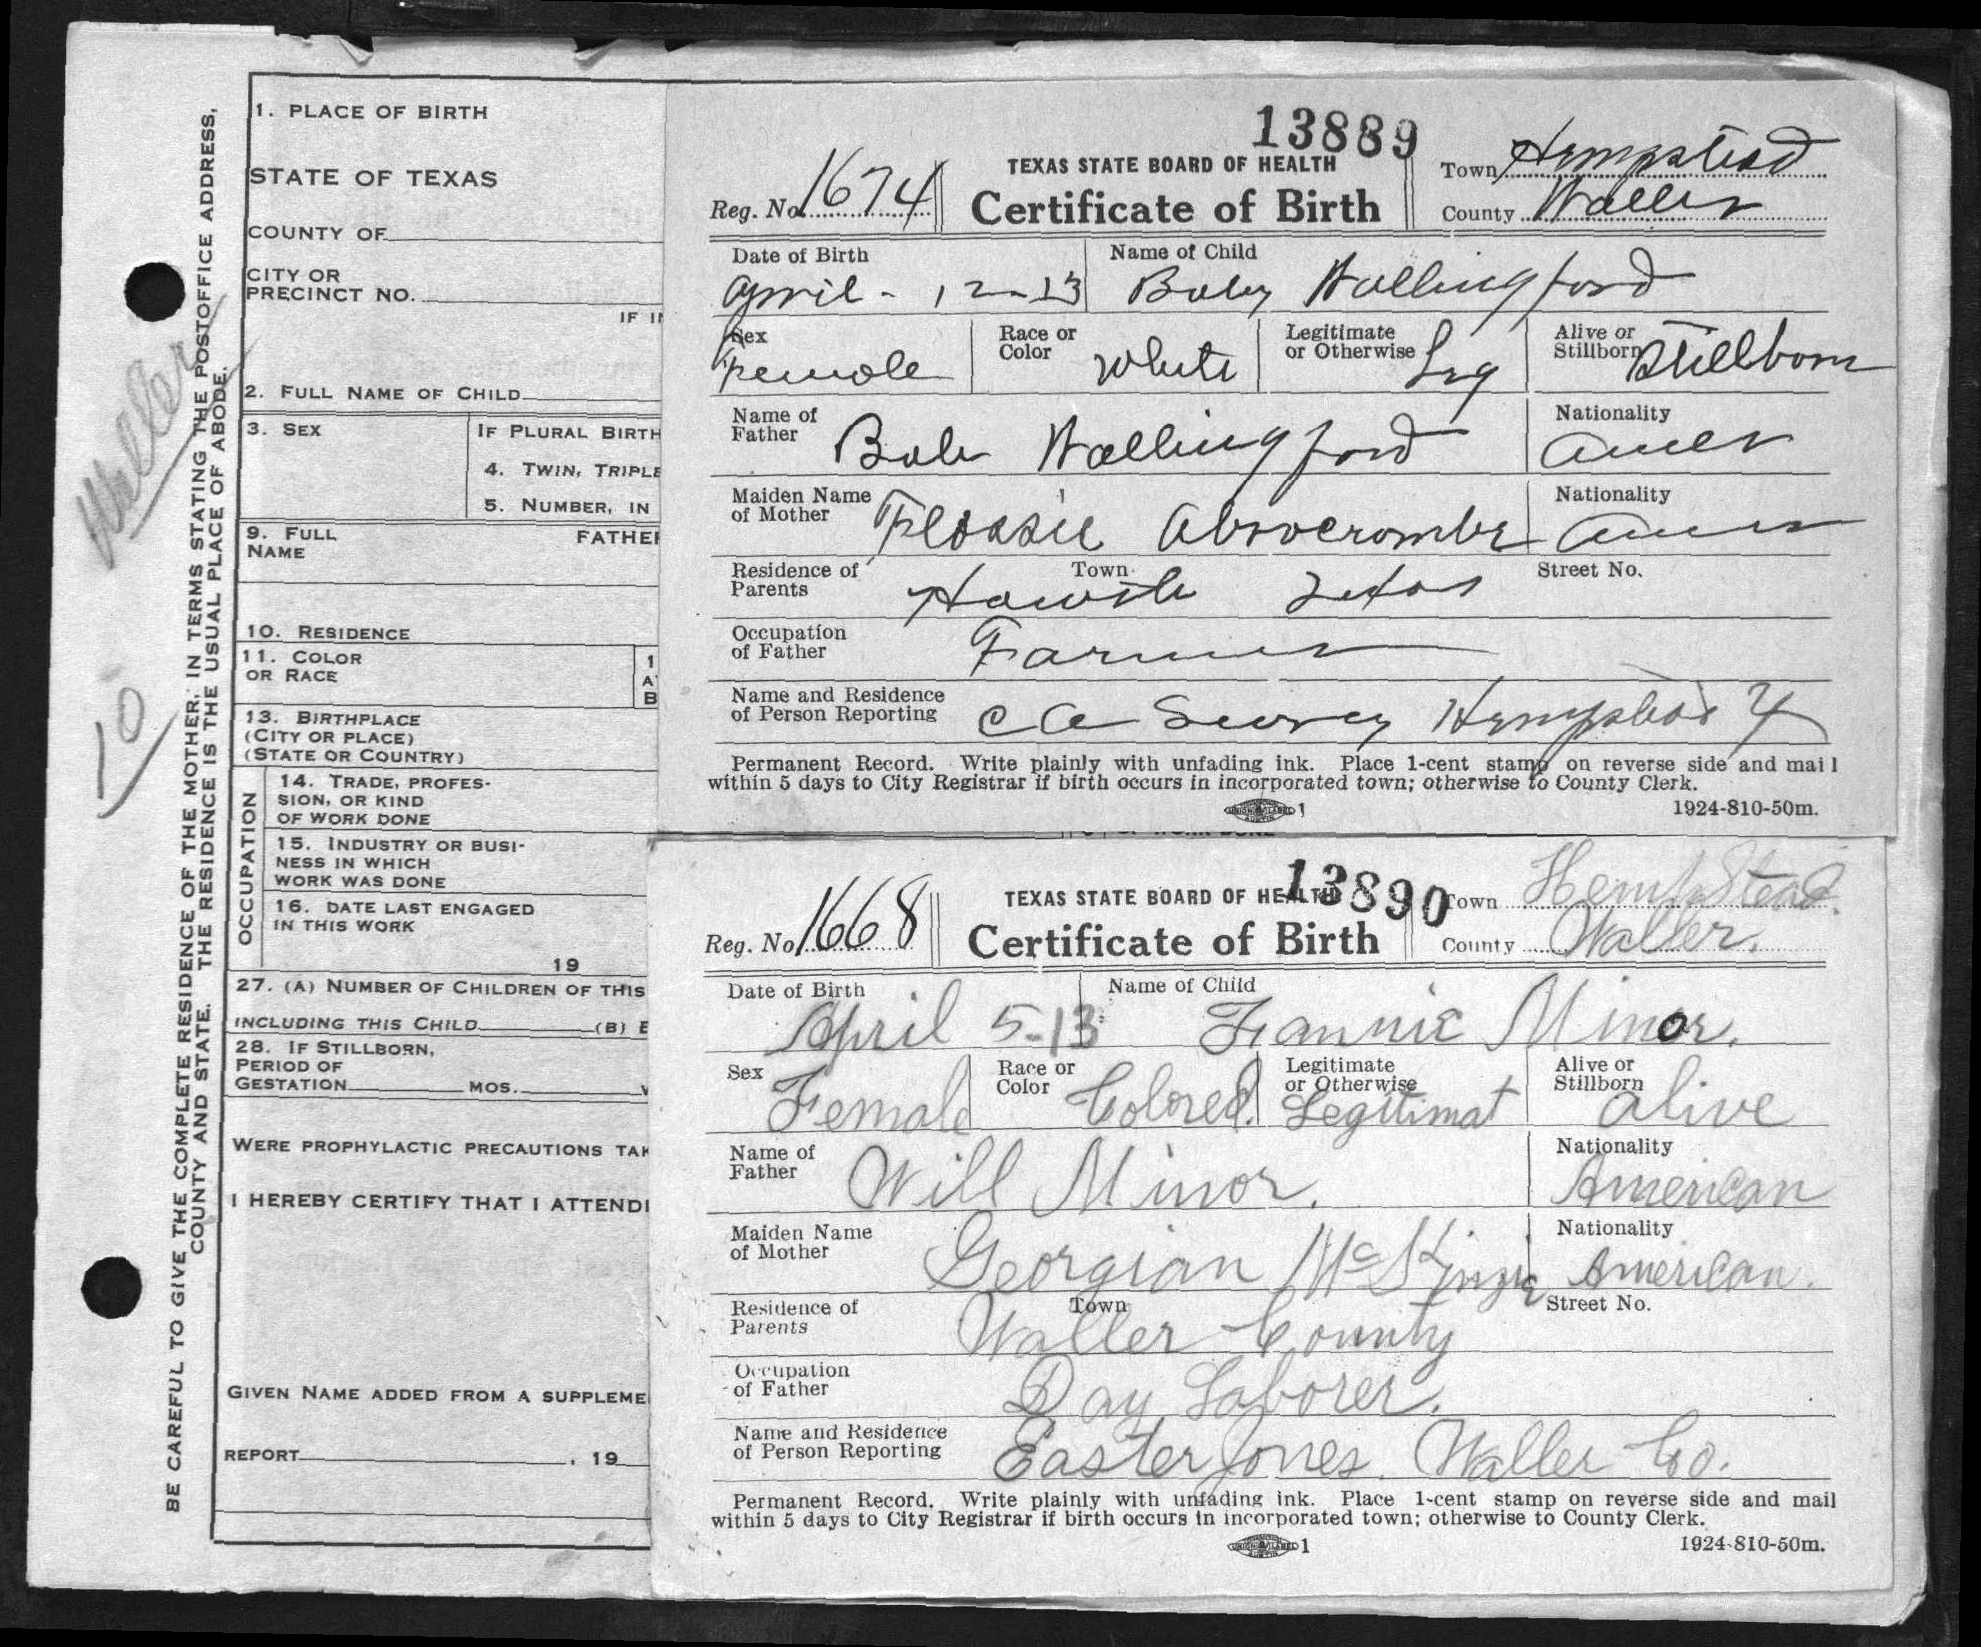 BE CAREFUL TO GIVE THE COMPLETE RESIDENCE OF THE MOTHER, IN TERMS STATING THE POSTOFFICE ADDRESS,
COUNTY AND STATE. THE RESIDENCE IS THE USUAL PLACE OF ABODE.
Waller
10
1. PLACE OF BIRTH
STATE OF TEXAS
COUNTY OF
CITY OR
PRECINCT NO.
IF IN
2. FULL NAME OF CHILD
3. SEX
IF PLURAL BIRTH
4. TWIN, TRIPLE
5. NUMBER, IN
9. FULL
NAME
FATHER
10. RESIDENCE
11. COLOR
OR RACE
13. BIRTHPLACE
(CITY OR PLACE)
(STATE OR COUNTRY)
OCCUPATION
14. TRADE, PROFES-
SION, OR KIND
OF WORK DONE
15. INDUSTRY OR BUSI-
NESS IN WHICH
WORK WAS DONE
16. DATE LAST ENGAGED
IN THIS WORK
19
27. (A) NUMBER OF CHILDREN OF THIS
INCLUDING THIS CHILD (B) B
28. IF STILLBORN,
PERIOD OF
GESTATION MOS.
WERE PROPHYLACTIC PRECAUTIONS TAK
I HEREBY CERTIFY THAT I ATTENDI
GIVEN NAME ADDED FROM A SUPPLEME
REPORT , 19
13889
TEXAS STATE BOARD OF HEALTH
Reg. No. 1674 Certificate of Birth
Town Hempstead
County Waller
Date of Birth Name of Child
April - 12-13 Baby Wallingford
Sex Race or Color Legitimate or Otherwise Alive or Stillborn
Female White Leg Stillborn
Name of Father Bob Wallingford Nationality Amer
Maiden Name of Mother Flossie Nationality Amer
Residence of Parents Town Texas Street No.
Occupation of Father Farmer
Name and Residence of Person Reporting C A Hempstead
Permanent Record. Write plainly with unfading ink. Place 1-cent stamp on reverse side and mail
within 5 days to City Registrar if birth occurs in incorporated town; otherwise to County Clerk.
1 1924-810-50m.
13890
TEXAS STATE BOARD OF HEALTH
Reg. No. 1668 Certificate of Birth
Town HempStead.
County Waller.
Date of Birth Name of Child
April 5-13 Fannie Minor.
Sex Race or Color Legitimate or Otherwise Alive or Stillborn
Female Colored. Legitimat alive
Name of Father Will Minor. Nationality American
Maiden Name of Mother Georgian McKinzie Nationality American.
Residence of Parents Town Waller County Street No.
Occupation of Father Day Laborer.
Name and Residence of Person Reporting Easter Jones. Waller Co.
Permanent Record. Write plainly with unfading ink. Place 1-cent stamp on reverse side and mail
within 5 days to City Registrar if birth occurs in incorporated town; otherwise to County Clerk.
1 1924-810-50m.